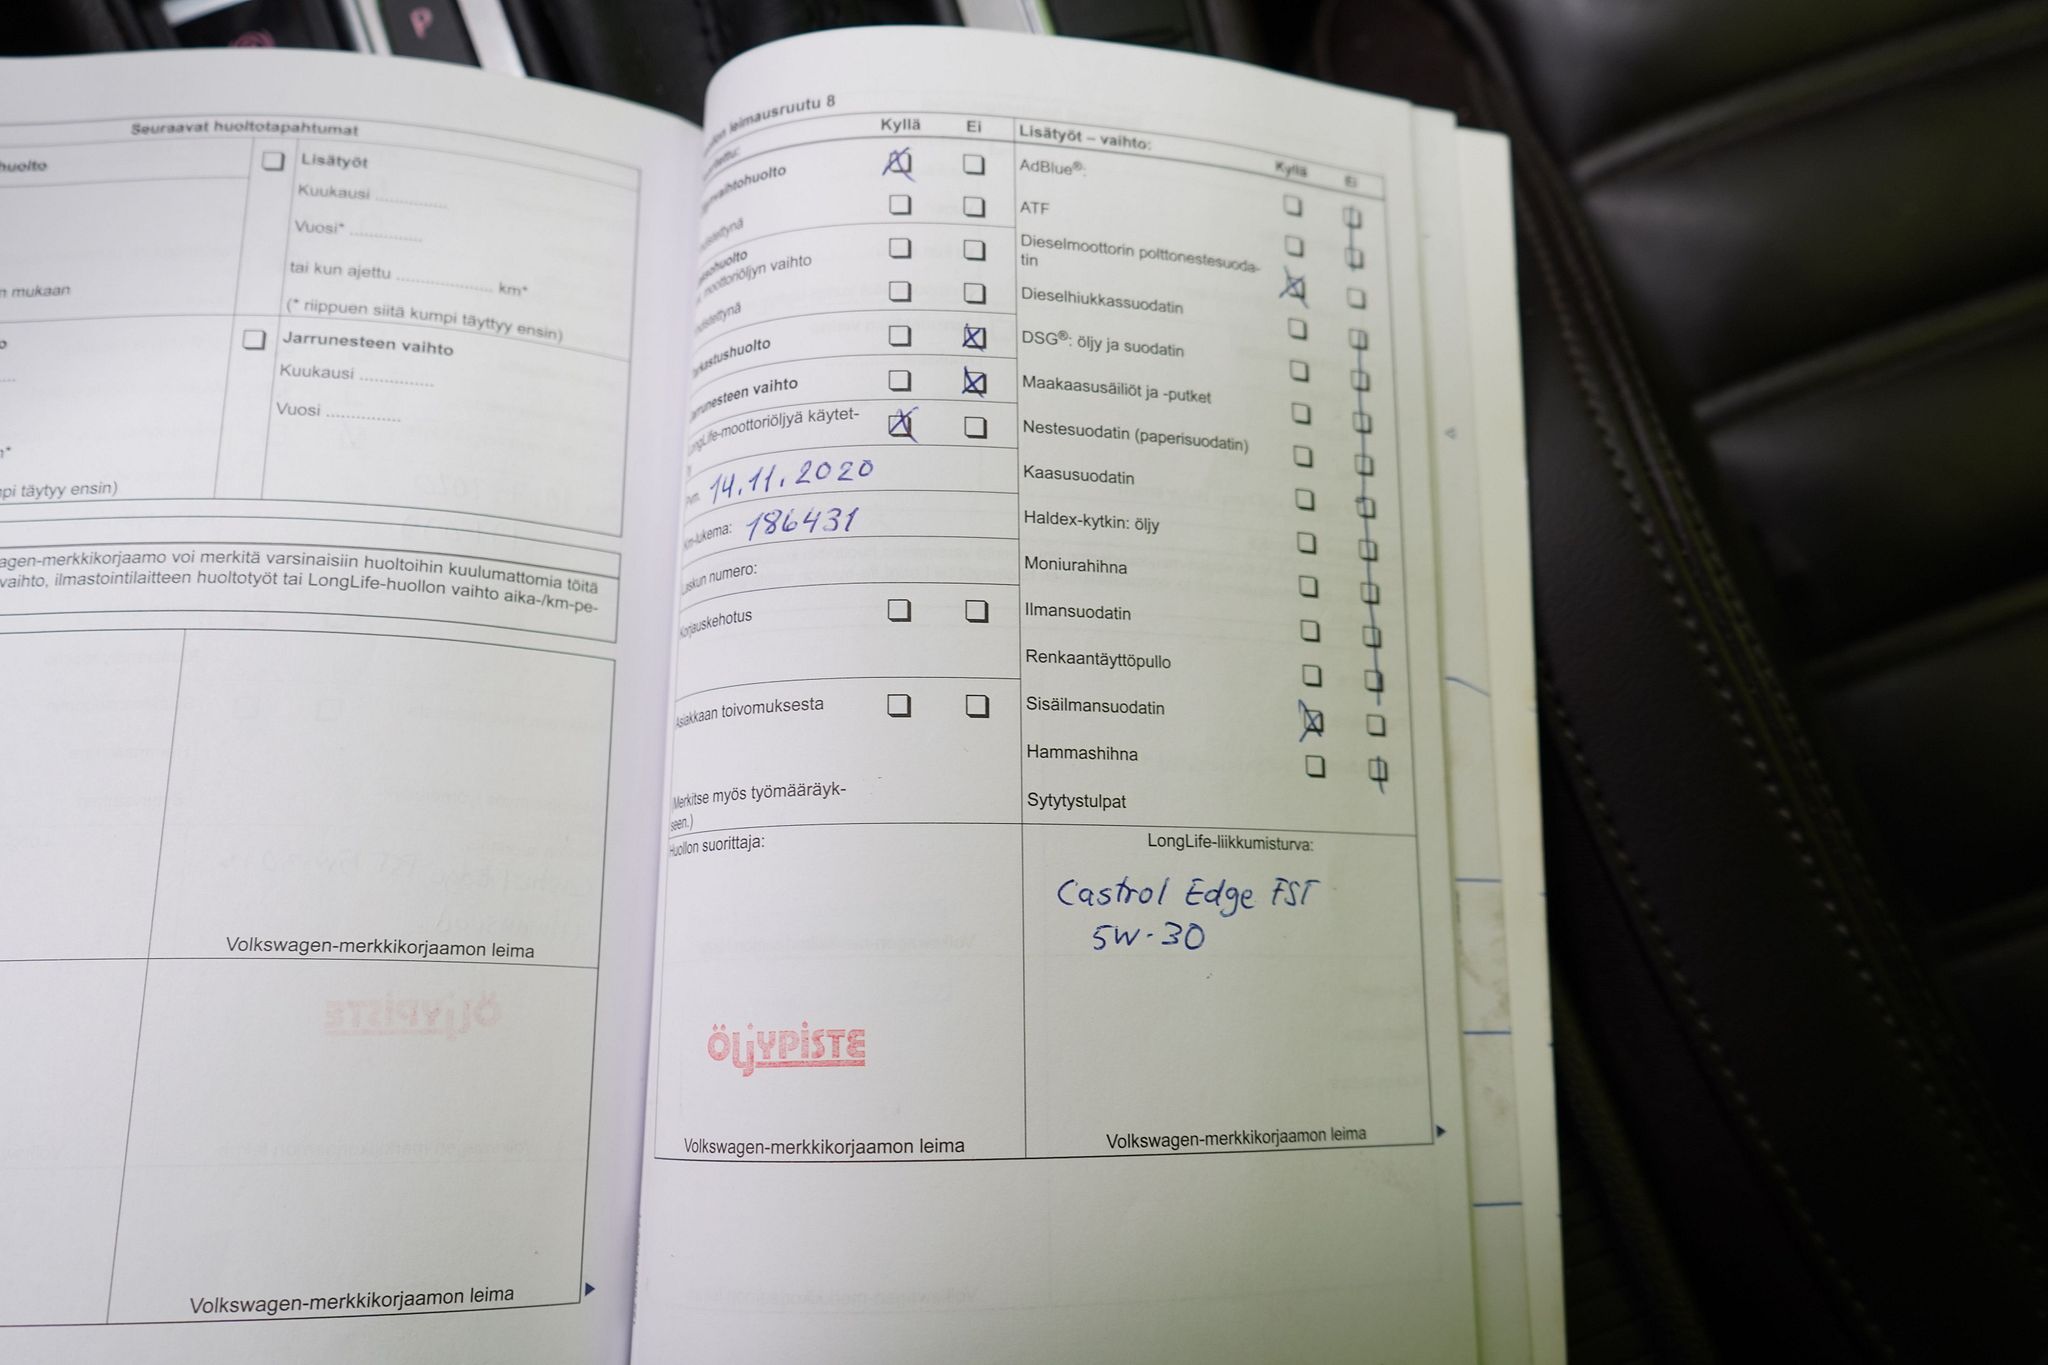 P
Seuraavat huoltotapahtumat
huolto
Lisätyöt
Kuukausi ..............
Vuosi* ..............
tai kun ajettu .................... km*
n mukaan
(* riippuen siitä kumpi täyttyy ensin)
Jarrunesteen vaihto
Kuukausi ..............
Vuosi ..............
pi täytyy ensin)
agen-merkkikorjaamo voi merkitä varsinaisiin huoltoihin kuulumattomia töitä
vaihto, ilmastointilaitteen huoltotyöt tai LongLife-huollon vaihto aika-/km-pe-
Volkswagen-merkkikorjaamon leima
Volkswagen-merkkikorjaamon leima
leimausruutu 8
Kyllä Ei
vaihtohuolto
moottoriöljyn vaihto
Tarkastushuolto
Jarrunesteen vaihto
LongLife-moottoriöljyä käytet-
ty
Pvm. 14.11.2020
Km-lukema: 186431
Laskun numero:
Korjauskehotus
Asiakkaan toivomuksesta
(Merkitse myös työmääräyk-
seen.)
Huollon suorittaja:
ÖLJYPISTE
Volkswagen-merkkikorjaamon leima
Lisätyöt – vaihto:
Kyllä Ei
AdBlue®:
ATF
Dieselmoottorin polttonestesuoda-
tin
Dieselhiukkassuodatin
DSG®: öljy ja suodatin
Maakaasusäiliöt ja -putket
Nestesuodatin (paperisuodatin)
Kaasusuodatin
Haldex-kytkin: öljy
Moniurahihna
Ilmansuodatin
Renkaantäyttöpullo
Sisäilmansuodatin
Hammashihna
Sytytystulpat
LongLife-liikkumisturva:
Castrol Edge FST
5W-30
Volkswagen-merkkikorjaamon leima